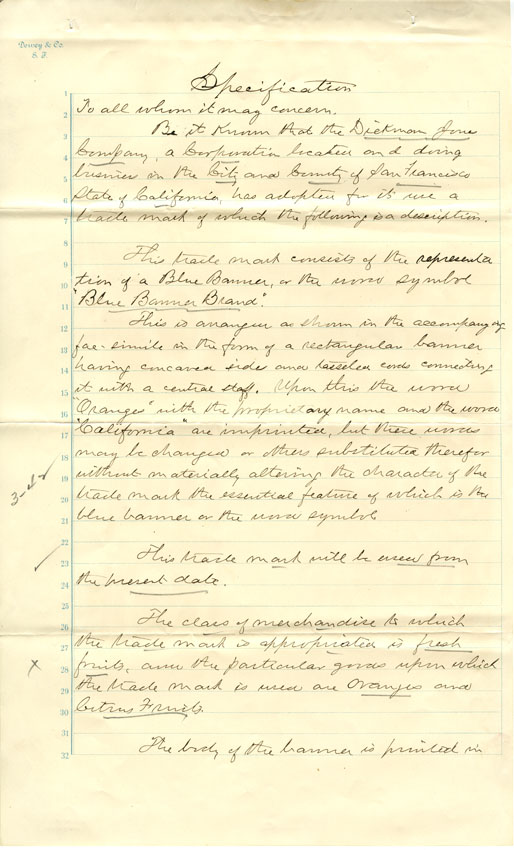 Dewey & Co.
S. F.
Specification
1
To all whom it may concern.
2
Be it Known that the Dickman Jones
3
Company, a Corporation located and doing
4
business in the City and County of San Francisco
5
State of California, has adopted for its use a
6
trade mark of which the following is a description.
7
8
This trade mark consists of the representa
9
tion of a Blue Banner, or the word symbol
10
"Blue Banner Brand".
11
This is arranged as shown in the accompanying
12
fac-simile in the form of a rectangular banner
13
having concaved sides and tasseled cords connecting
14
it with a central staff. Upon this the word
15
"Oranges" with the proprietary name and the word
16
"California" are imprinted, but these words
17
may be changed or others substituted therefor
18
without materially altering the character of the
19
trade mark the essential feature of which is the
20
blue banner or the word symbol
21
22
This trade mark will be used from
23
the present date.
24
25
The class of merchandise to which
26
the trade mark is appropriated is fresh
27
fruits, and the particular goods upon which
28
x
the trade mark is used are Oranges and
29
Citrus Fruits.
30
31
The body of the banner is printed in
32